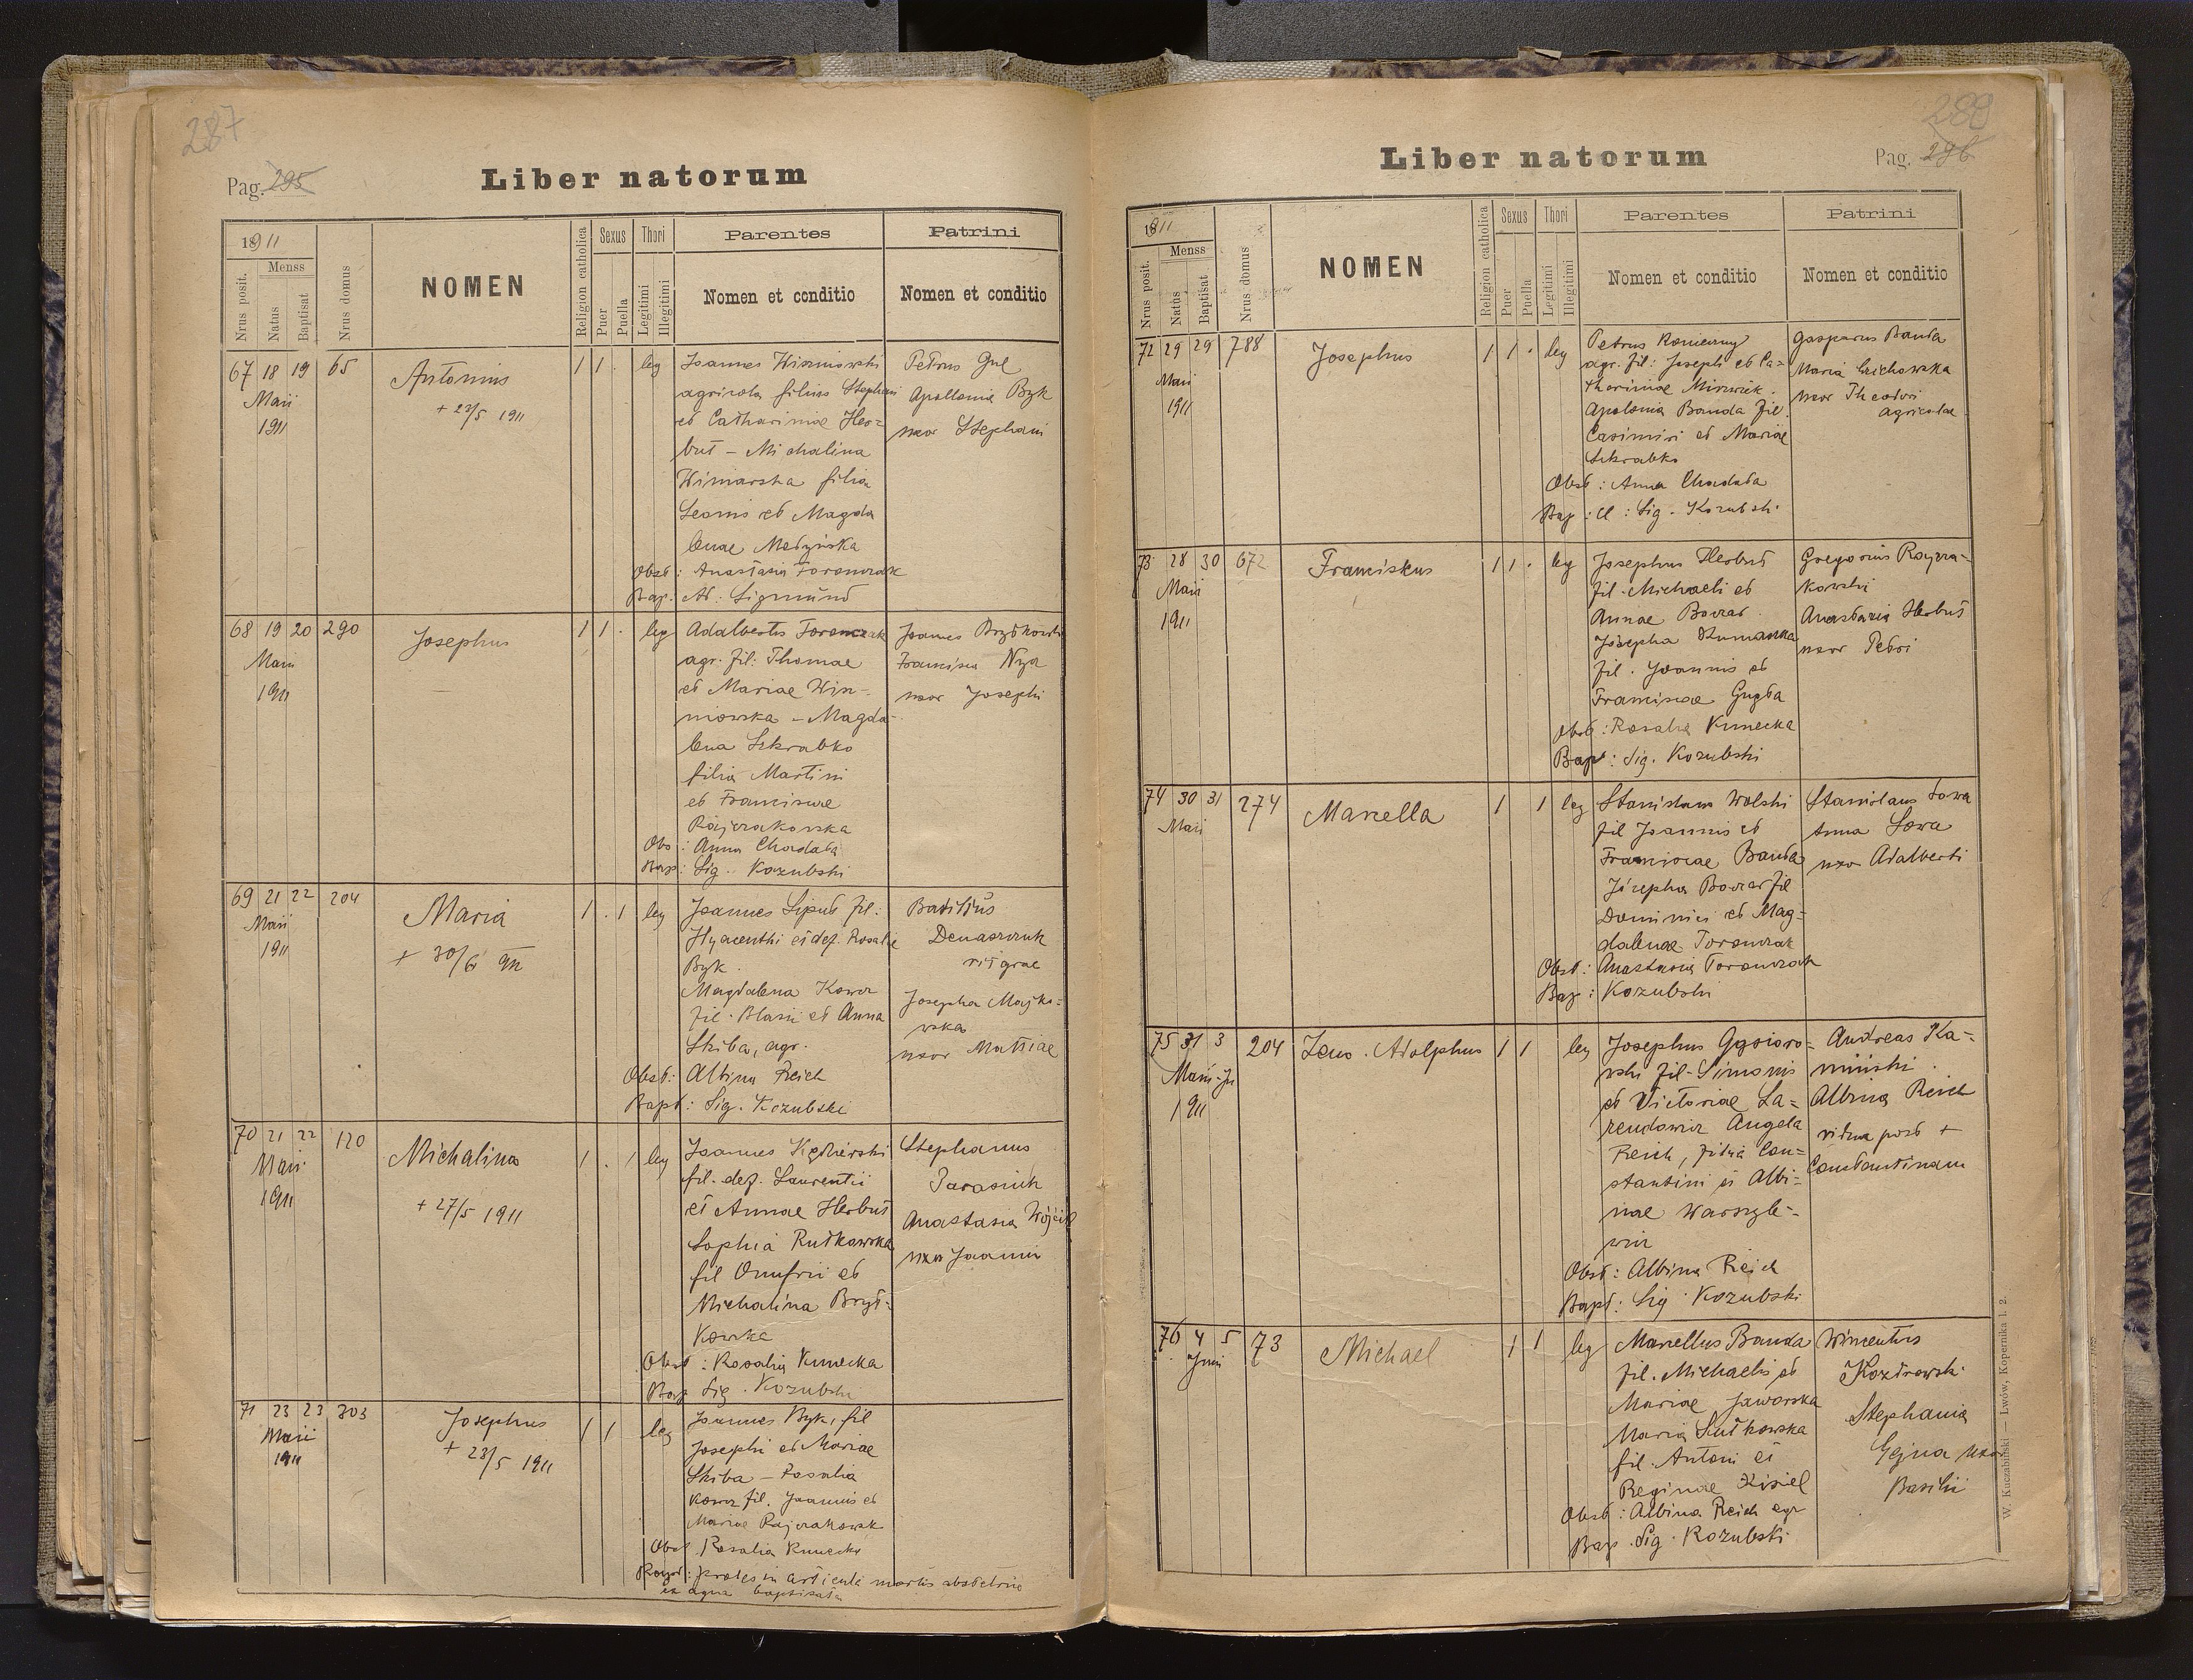 287
Pag. 295
Liber natorum
1911
Nrus posit.
Menss
Natus
Baptisat
Nrus domus
NOMEN
Religion catholica
Sexus
Puer
Puella
Thori
Legitimi
Illegitimi
Parentes
Nomen et conditio
Patrini
Nomen et conditio
67 18 19 65
Maii
1911
Antonius
+ 23/5 1911
1 1 .
leg
Joannes Wiszniowski
agricola filius Stephani
et Catharinae Her=
but - Michalina
Winiarska filia
Leonis et Magda
lenae Medyńska
Obst: Anastasia Toronczak
Bap: Ad: Sigmund
Petrus Gul
Apollonia Byk
uxor Stephani
68 19 20 290
Maii
1911
Josephus
1 1 .
leg
Adalbertus Toronczak
agr. fil: Thomae
et Mariae Wisz-
niowska - Magda-
lena Szkrabko
filia Martini
et Franciscae
Rajzrakowska
Obs: Anna Chadała
Bap: Sig. Kozubski
Joannes Brydkowski
Francisca Nyz
uxor Josephi
69 21 22 204
Maii
1911
Maria
+ 30/6 911
1 . 1
leg
Joannes Liput fil:
Hyacenthi et def. Rosalie
Byk.
Magdalena Kowcz
fil. Blasii et Anna
Skiba, agr.
Obst: Albina Reich
Bapt: Sig. Kozubski
Basilius
Denaszczuk
rit grae
Josepha Majko=
wska
uxor Matthiae
70 21 22 120
Maii
1911
Michalina
+ 27/5 1911
1 . 1
leg
Joannes Kędzierski
fil. def. Laurentii
et Annae Herbut
Sophia Rutkowska
fil Onufrii et
Michalina Bryd-
kowska
Obst: Rosalia Kunecka
Bap Sig. Kozubski
Stephanus
Parasiuk
Anastasia Wójcik
uxor Joannis
71 23 23 303
Maii
1911
Josephus
+ 23/5 1911
1 1
leg
Joannes Byk, fil
Josephi et Mariae
Skiba - Rosalia
Kowcz fil. Joannis et
Mariae Rajzrakowsk
Obst. Rosalia Kunecka
Bapt: proles in articulo mortis ab obstetrice
ex aqua baptisata
289
Pag. 296
Liber natorum
1911
Nrus posit.
Menss
Natus
Baptisat
Nrus domus
NOMEN
Religion catholica
Sexus
Puer
Puella
Thori
Legitimi
Illegitimi
Parentes
Nomen et conditio
Patrini
Nomen et conditio
72 29 29 788
Maii
1911
Josephus
1 1 .
leg
Petrus Konieczny
agr. fil: Josephi et Ca=
tharinae Mizwik.
Apolonia Banda fil.
Casimiri et Mariae
Szkrabko
Obst: Anna Chadała
Bap: A: Sig. Kozubski
Gasparus Banda
Maria Cichowska
uxor Theodori
agricolae
73 28 30 672
Maii
1911
Franciskus
1 1 .
leg
Josephus Herbut
fil. Michaeli et
Annae Boczar.
Josepha Szumanska
fil. Joannis et
Franciscae Guzda
Obst: Rosalia Kunecka
Bapt: Sig. Kozubski
Gregorius Rajzra-
kowski
Anastazia Herbut
uxor Petri
74 30 31 274
Maii
Marcella
1 1
leg
Stanislaus Wolski
fil Joannis et
Franciscae Banda
Josepha Boczar fil
Dominici et Mag-
dalenae Toronczak
Obst: Anastasia Toronczak
Bap: Kozubski
Stanislaus Sowa
Anna Sowa
uxor Adalberti
75 31 3 204
Maii-Ju
1911
Zeno. Adolphus
1 1
leg
Josephus Gąsioro=
wski fil-Simonis
et Victoriae La=
rendowicz Angela
Reich, filia Con=
stantini et Albi-
nae Warszyle-
wicz
Obst: Albina Reich
Bapt: Sig Kozubski
Andreas Ka-
miński.
Albina Reich
vidua post +
Constantinum
76 4 5 73
Juni
Michael
1 1
leg
Marcellus Banda
fil. Michaelis et
Mariae Jaworska
Maria Sutkowska
fil. Antoni et
Reginae Kisiel
Obst: Albina Reich agr
Bap. Sig. Kozubski
Wincentus
Kozdrowski
Stephania
Gejna uxor
Basilii
W. Kuczabiński — Lwów, Kopernika l. 2.